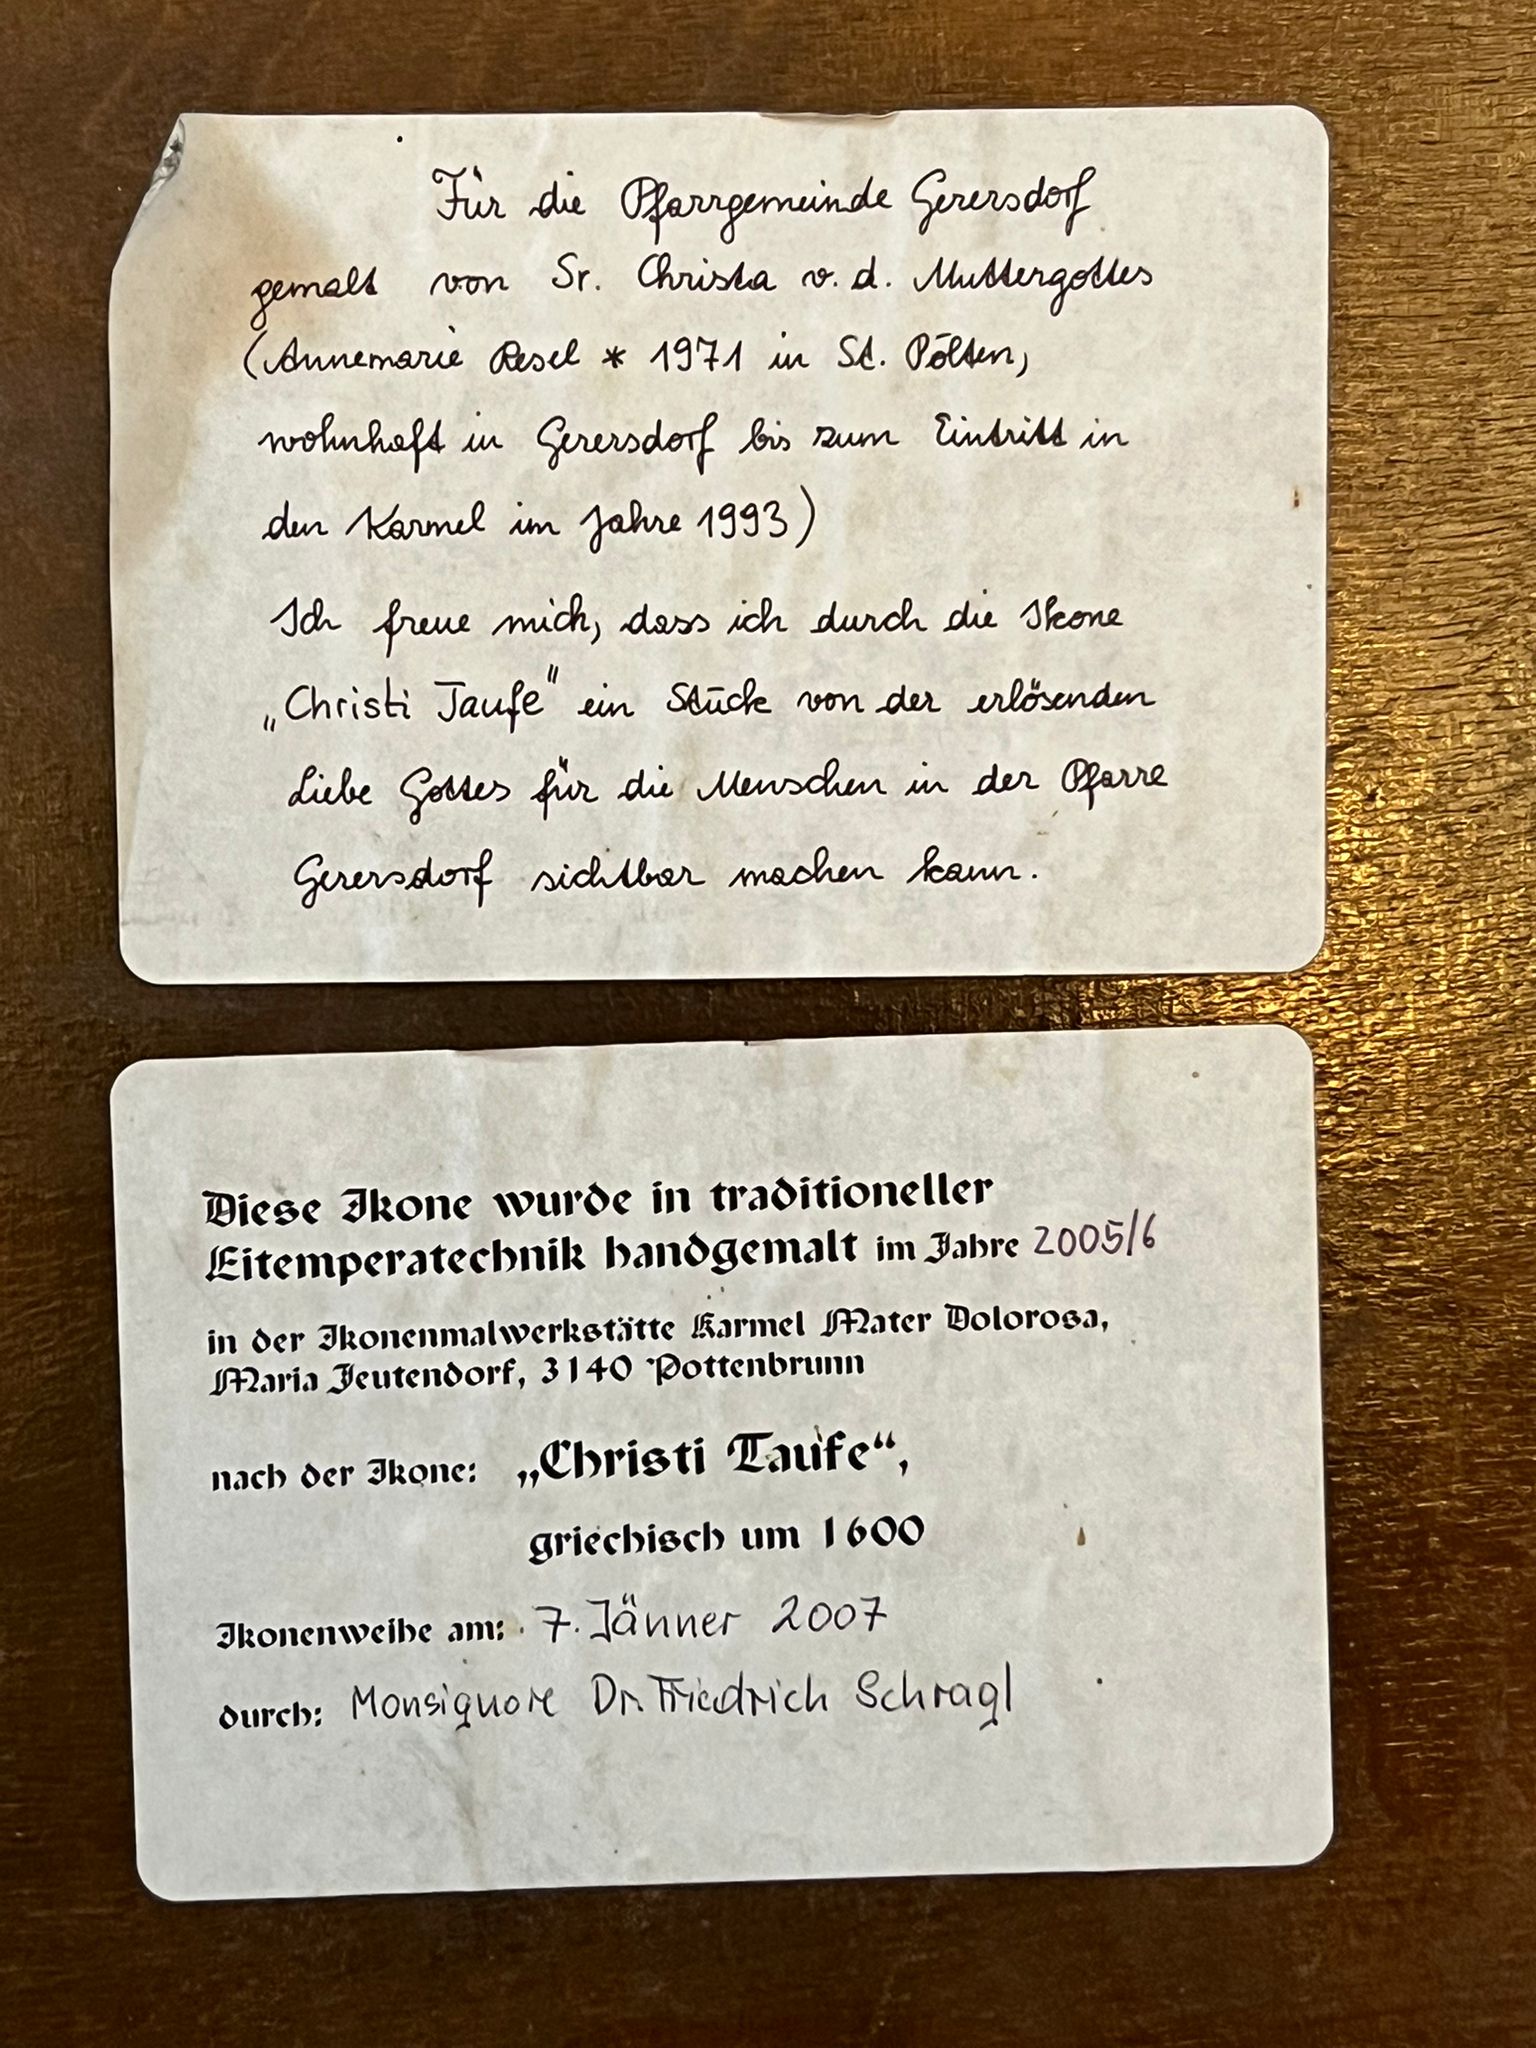 Für die Pfarrgemeinde Gerersdorf
gemalt von Sr. Christa v. d. Muttergottes
(Annemarie Resel * 1971 in St. Pölten,
wohnhaft in Gerersdorf bis zum Eintritt in
den Karmel im Jahre 1993)
Ich freue mich, dass ich durch die Ikone
„Christi Taufe" ein Stück von der erlösenden
Liebe Gottes für die Menschen in der Pfarre
Gerersdorf sichtbar machen kann.
Diese Ikone wurde in traditioneller
Eitemperatechnik handgemalt im Jahre 2005/6
in der Ikonenmalwerkstätte Karmel Mater Dolorosa,
Maria Jeutendorf, 3140 Pottenbrunn
nach der Ikone: „Christi Taufe“,
griechisch um 1600
Ikonenweihe am: 7. Jänner 2007
durch: Monsignore Dr. Friedrich Schragl